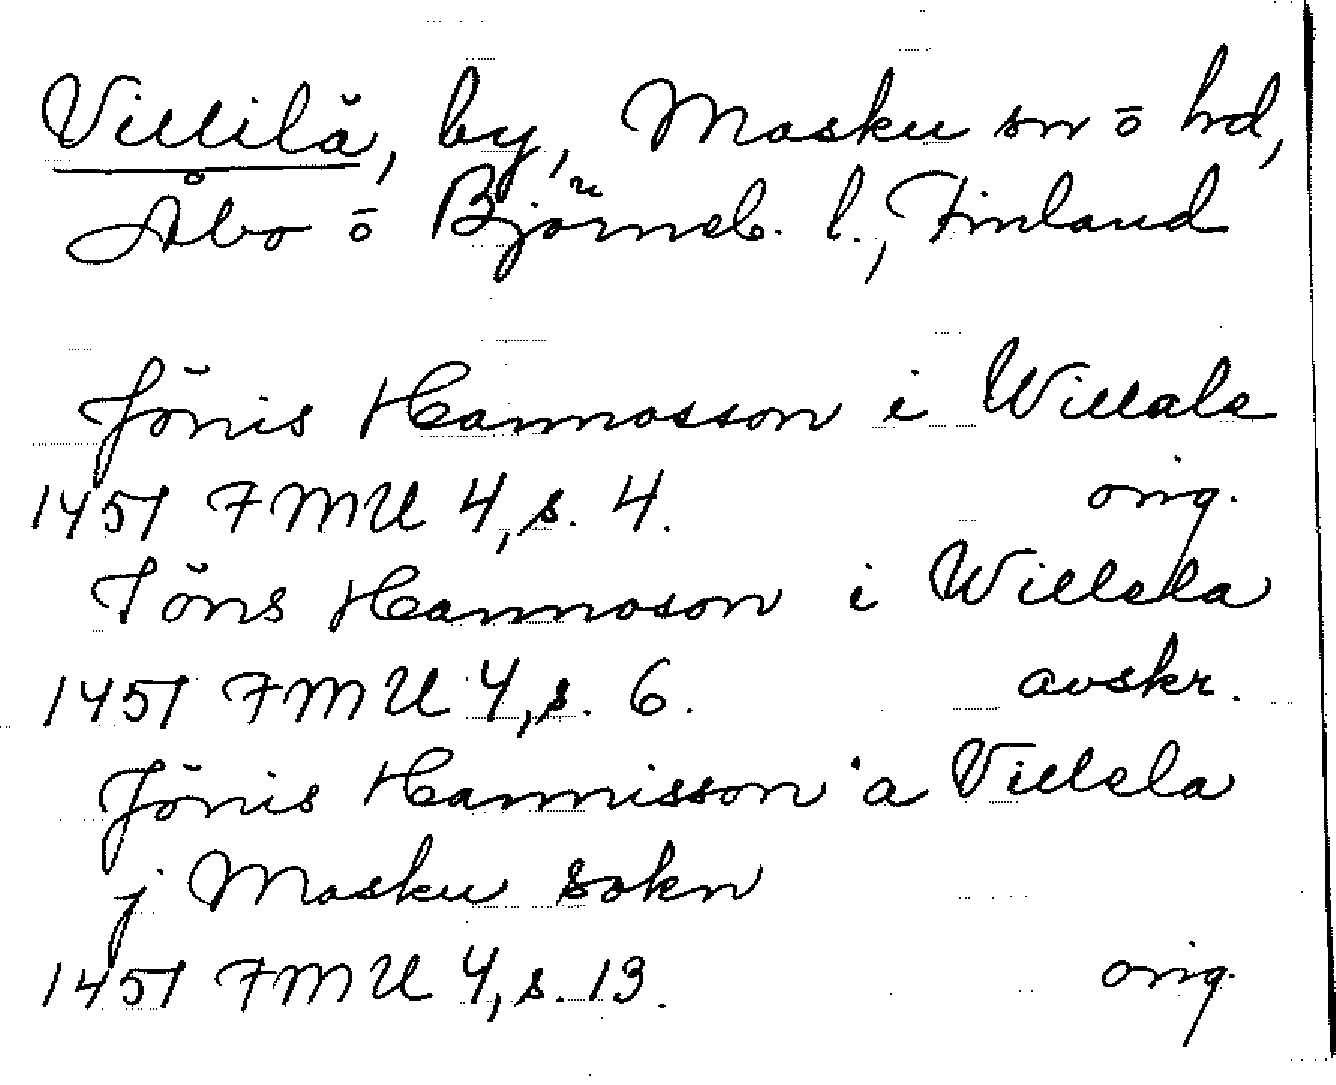 Villilä, by, Masku sn ō hd,
Åbo ō Björneb. l., Finland
Jönis Hannosson i Willala
1451 FMU 4, s. 4. orig.
Jöns Hannoson i Willela
1451 FMU 4, s. 6. avskr.
Jönis Hannisson a Villela
j Masku sokn
1451 FMU 4, s. 13. orig.